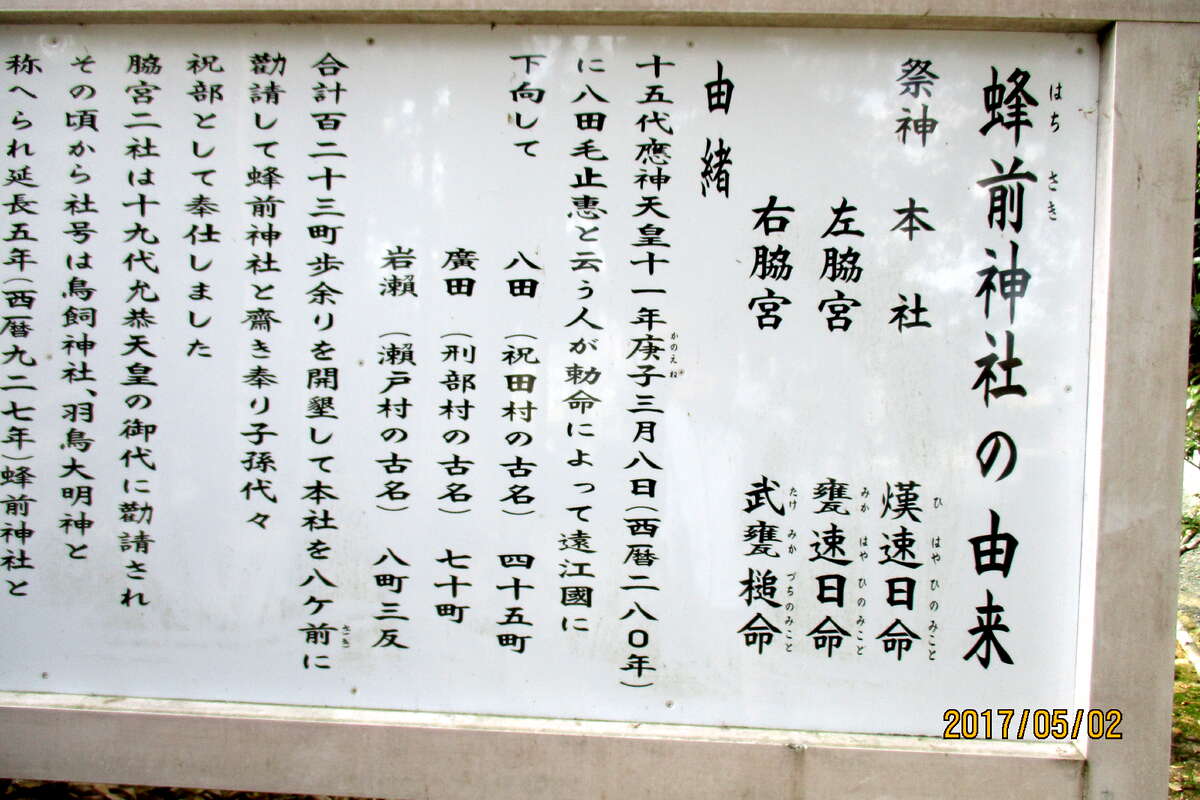 蜂前神社の由来
はち さき
祭神 本社 熯速日命
ひ はや ひのみこと
左脇宮 甕速日命
みか はや ひのみこと
右脇宮 武甕槌命
たけ みか づちのみこと
由緒
十五代應神天皇十一年庚子三月八日(西暦二八〇年)
かのえね
に八田毛止恵と云う人が勅命によって遠江國に
下向して 八田 (祝田村の古名) 四十五町
廣田 (刑部村の古名) 七十町
岩瀬 (瀬戸村の古名) 八町三反
合計百二十三町歩余りを開墾して本社を八ケ前に
さき
勸請して蜂前神社と齋き奉り子孫代々
祝部として奉仕しました
脇宮二社は十九代允恭天皇の御代に勸請され
その頃から社号は鳥飼神社、羽鳥大明神と
称へられ延長五年(西暦九二七年)蜂前神社と
2017/05/02